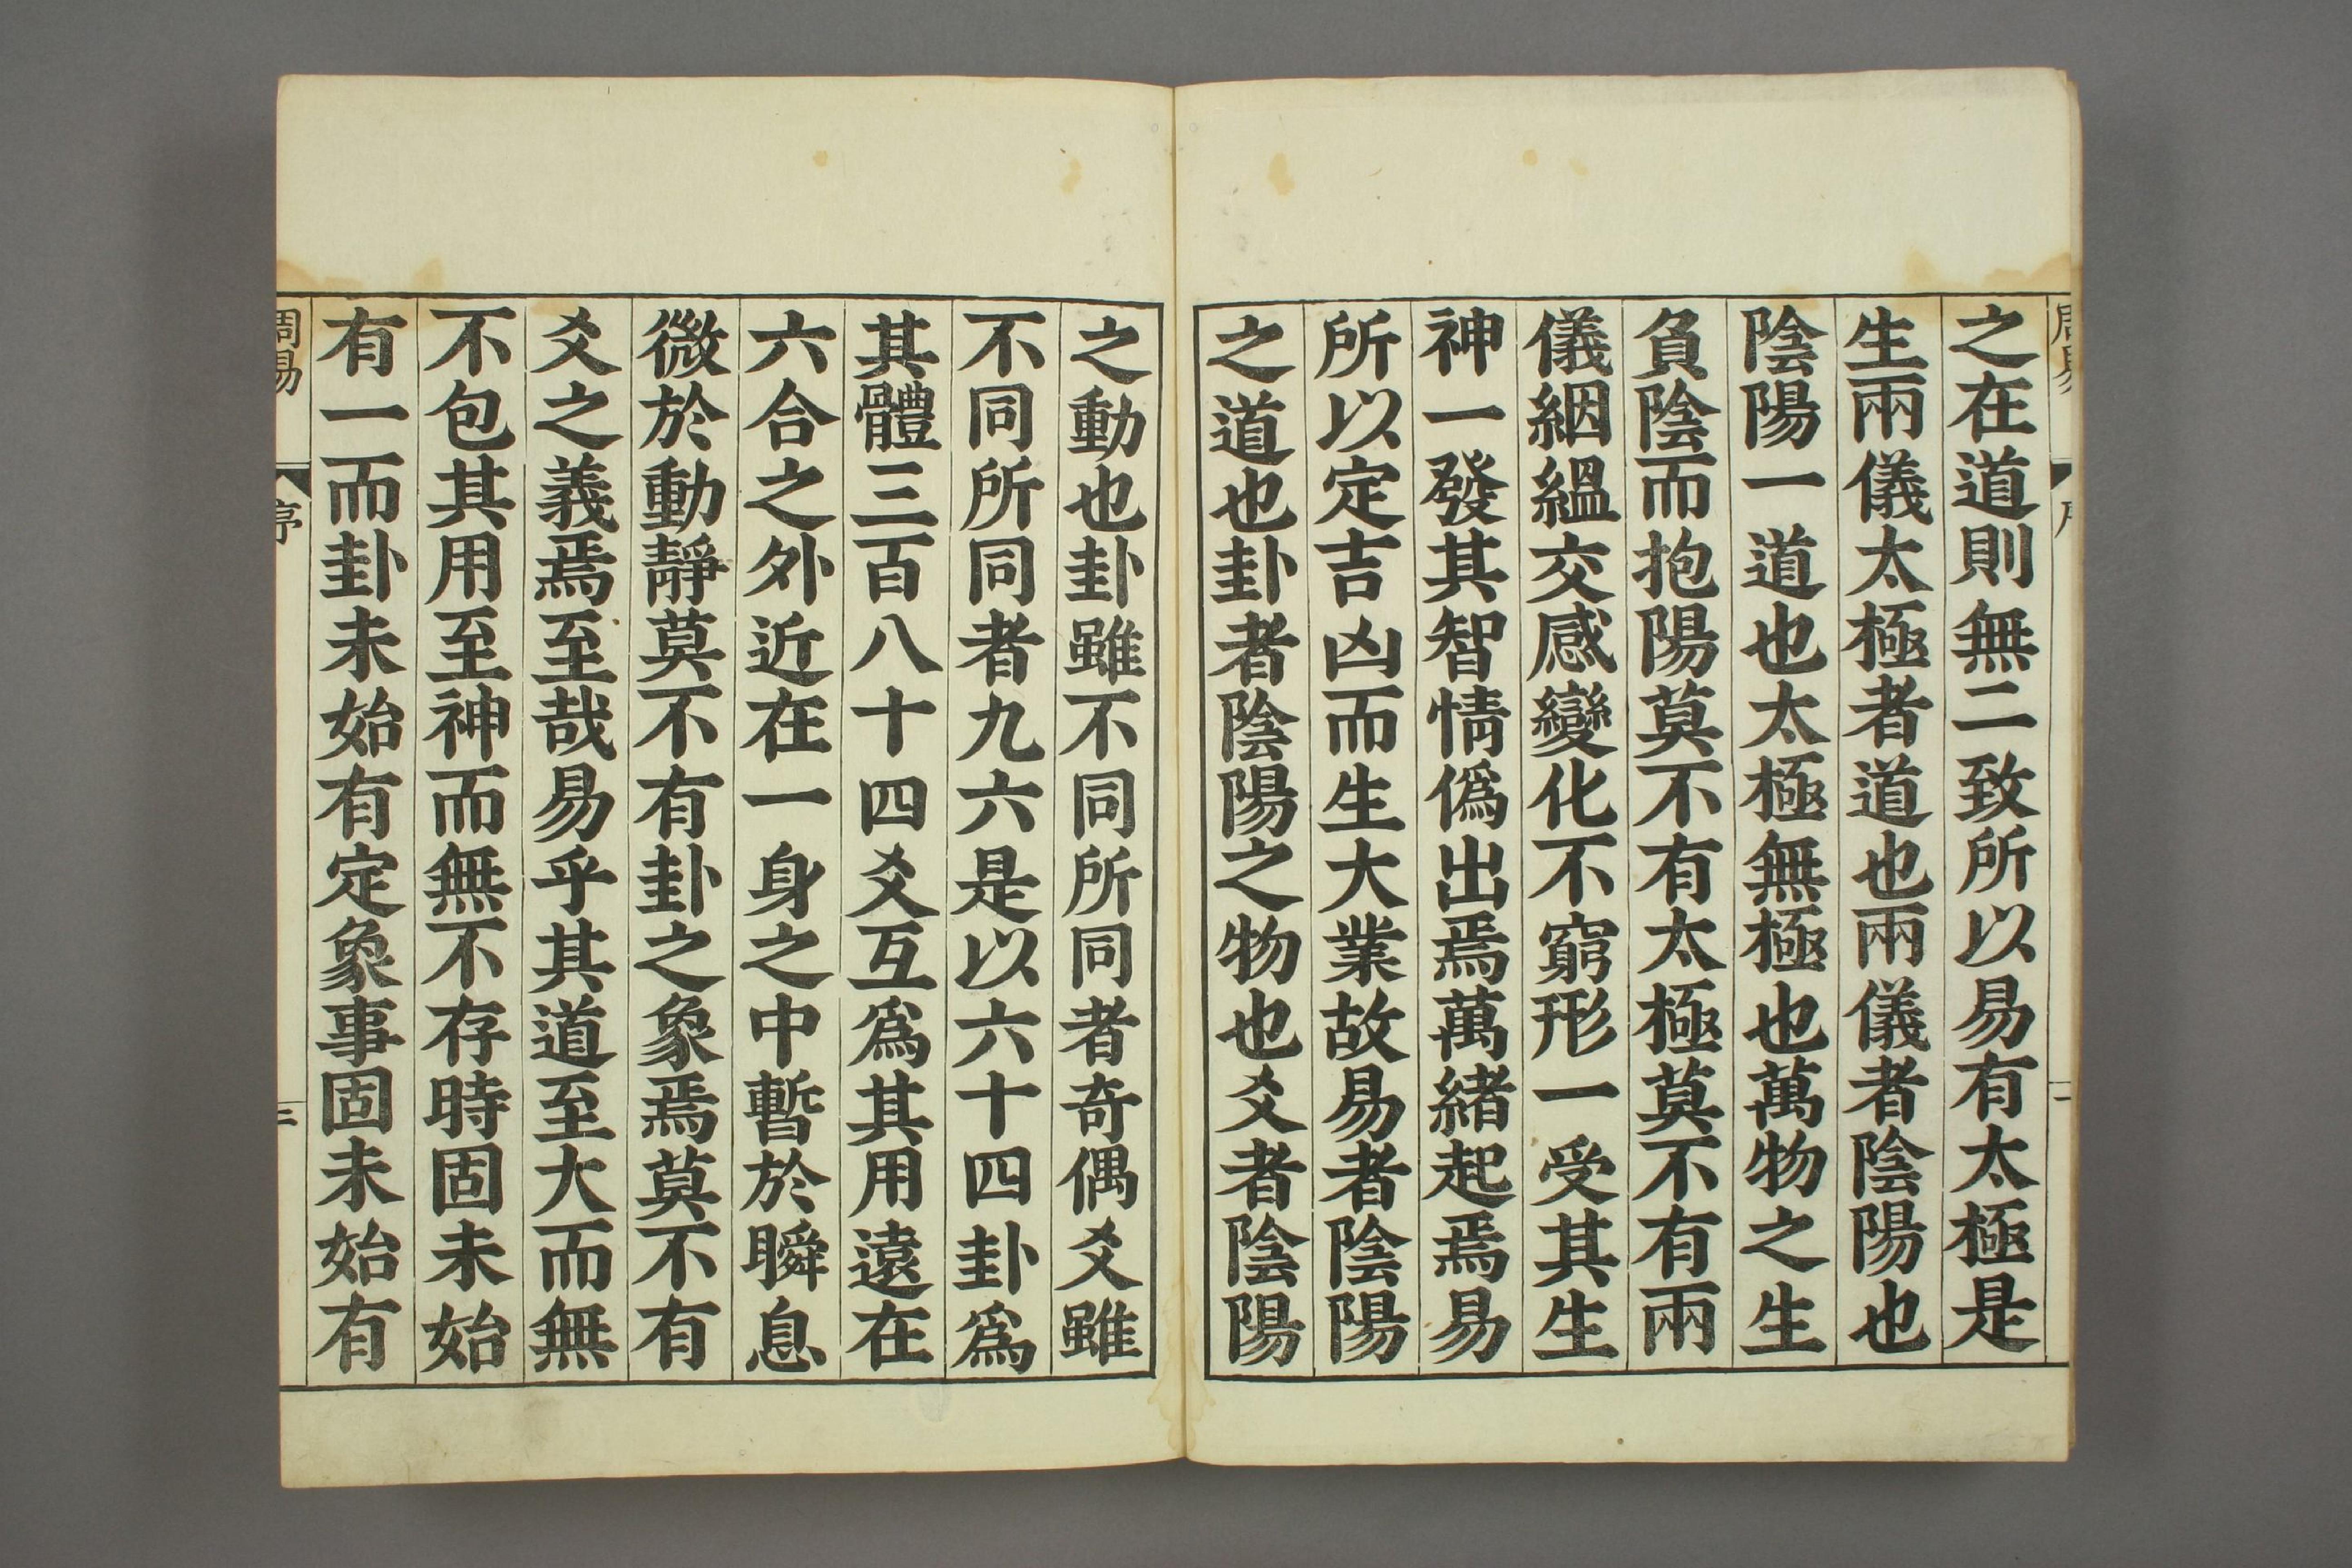 周易
序
二
之在道則無二致所以易有太極是
生兩儀太極者道也兩儀者陰陽也
陰陽一道也太極無極也萬物之生
負陰而抱陽莫不有太極莫不有兩
儀絪縕交感變化不窮形一受其生
神一發其智情僞出焉萬緒起焉易
所以定吉凶而生大業故易者陰陽
之道也卦者陰陽之物也爻者陰陽
之動也卦雖不同所同者奇偶爻雖
不同所同者九六是以六十四卦爲
其體三百八十四爻互爲其用遠在
六合之外近在一身之中暫於瞬息
微於動靜莫不有卦之象焉莫不有
爻之義焉至哉易乎其道至大而無
不包其用至神而無不存時固未始
有一而卦未始有定象事固未始有
周易
序